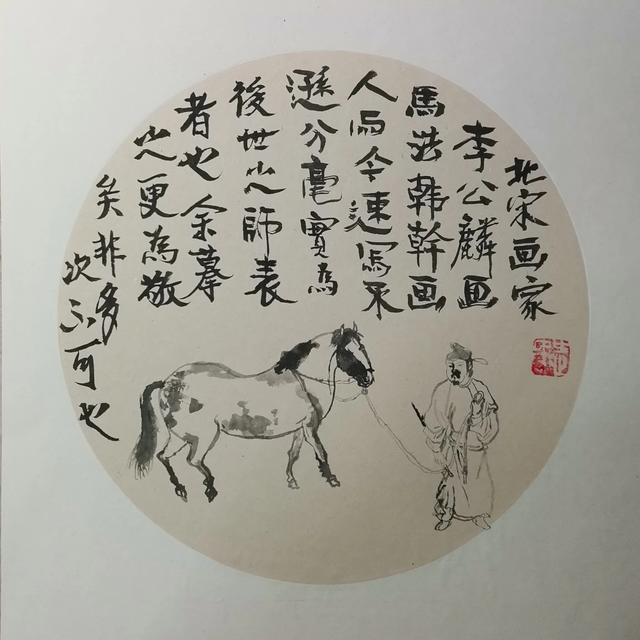 北宋画家
李公麟画
馬法韓幹画
人而今速冩不
遜分毫實為
後世之師表
者也余摹
之更為敬
矣非多
次不可也